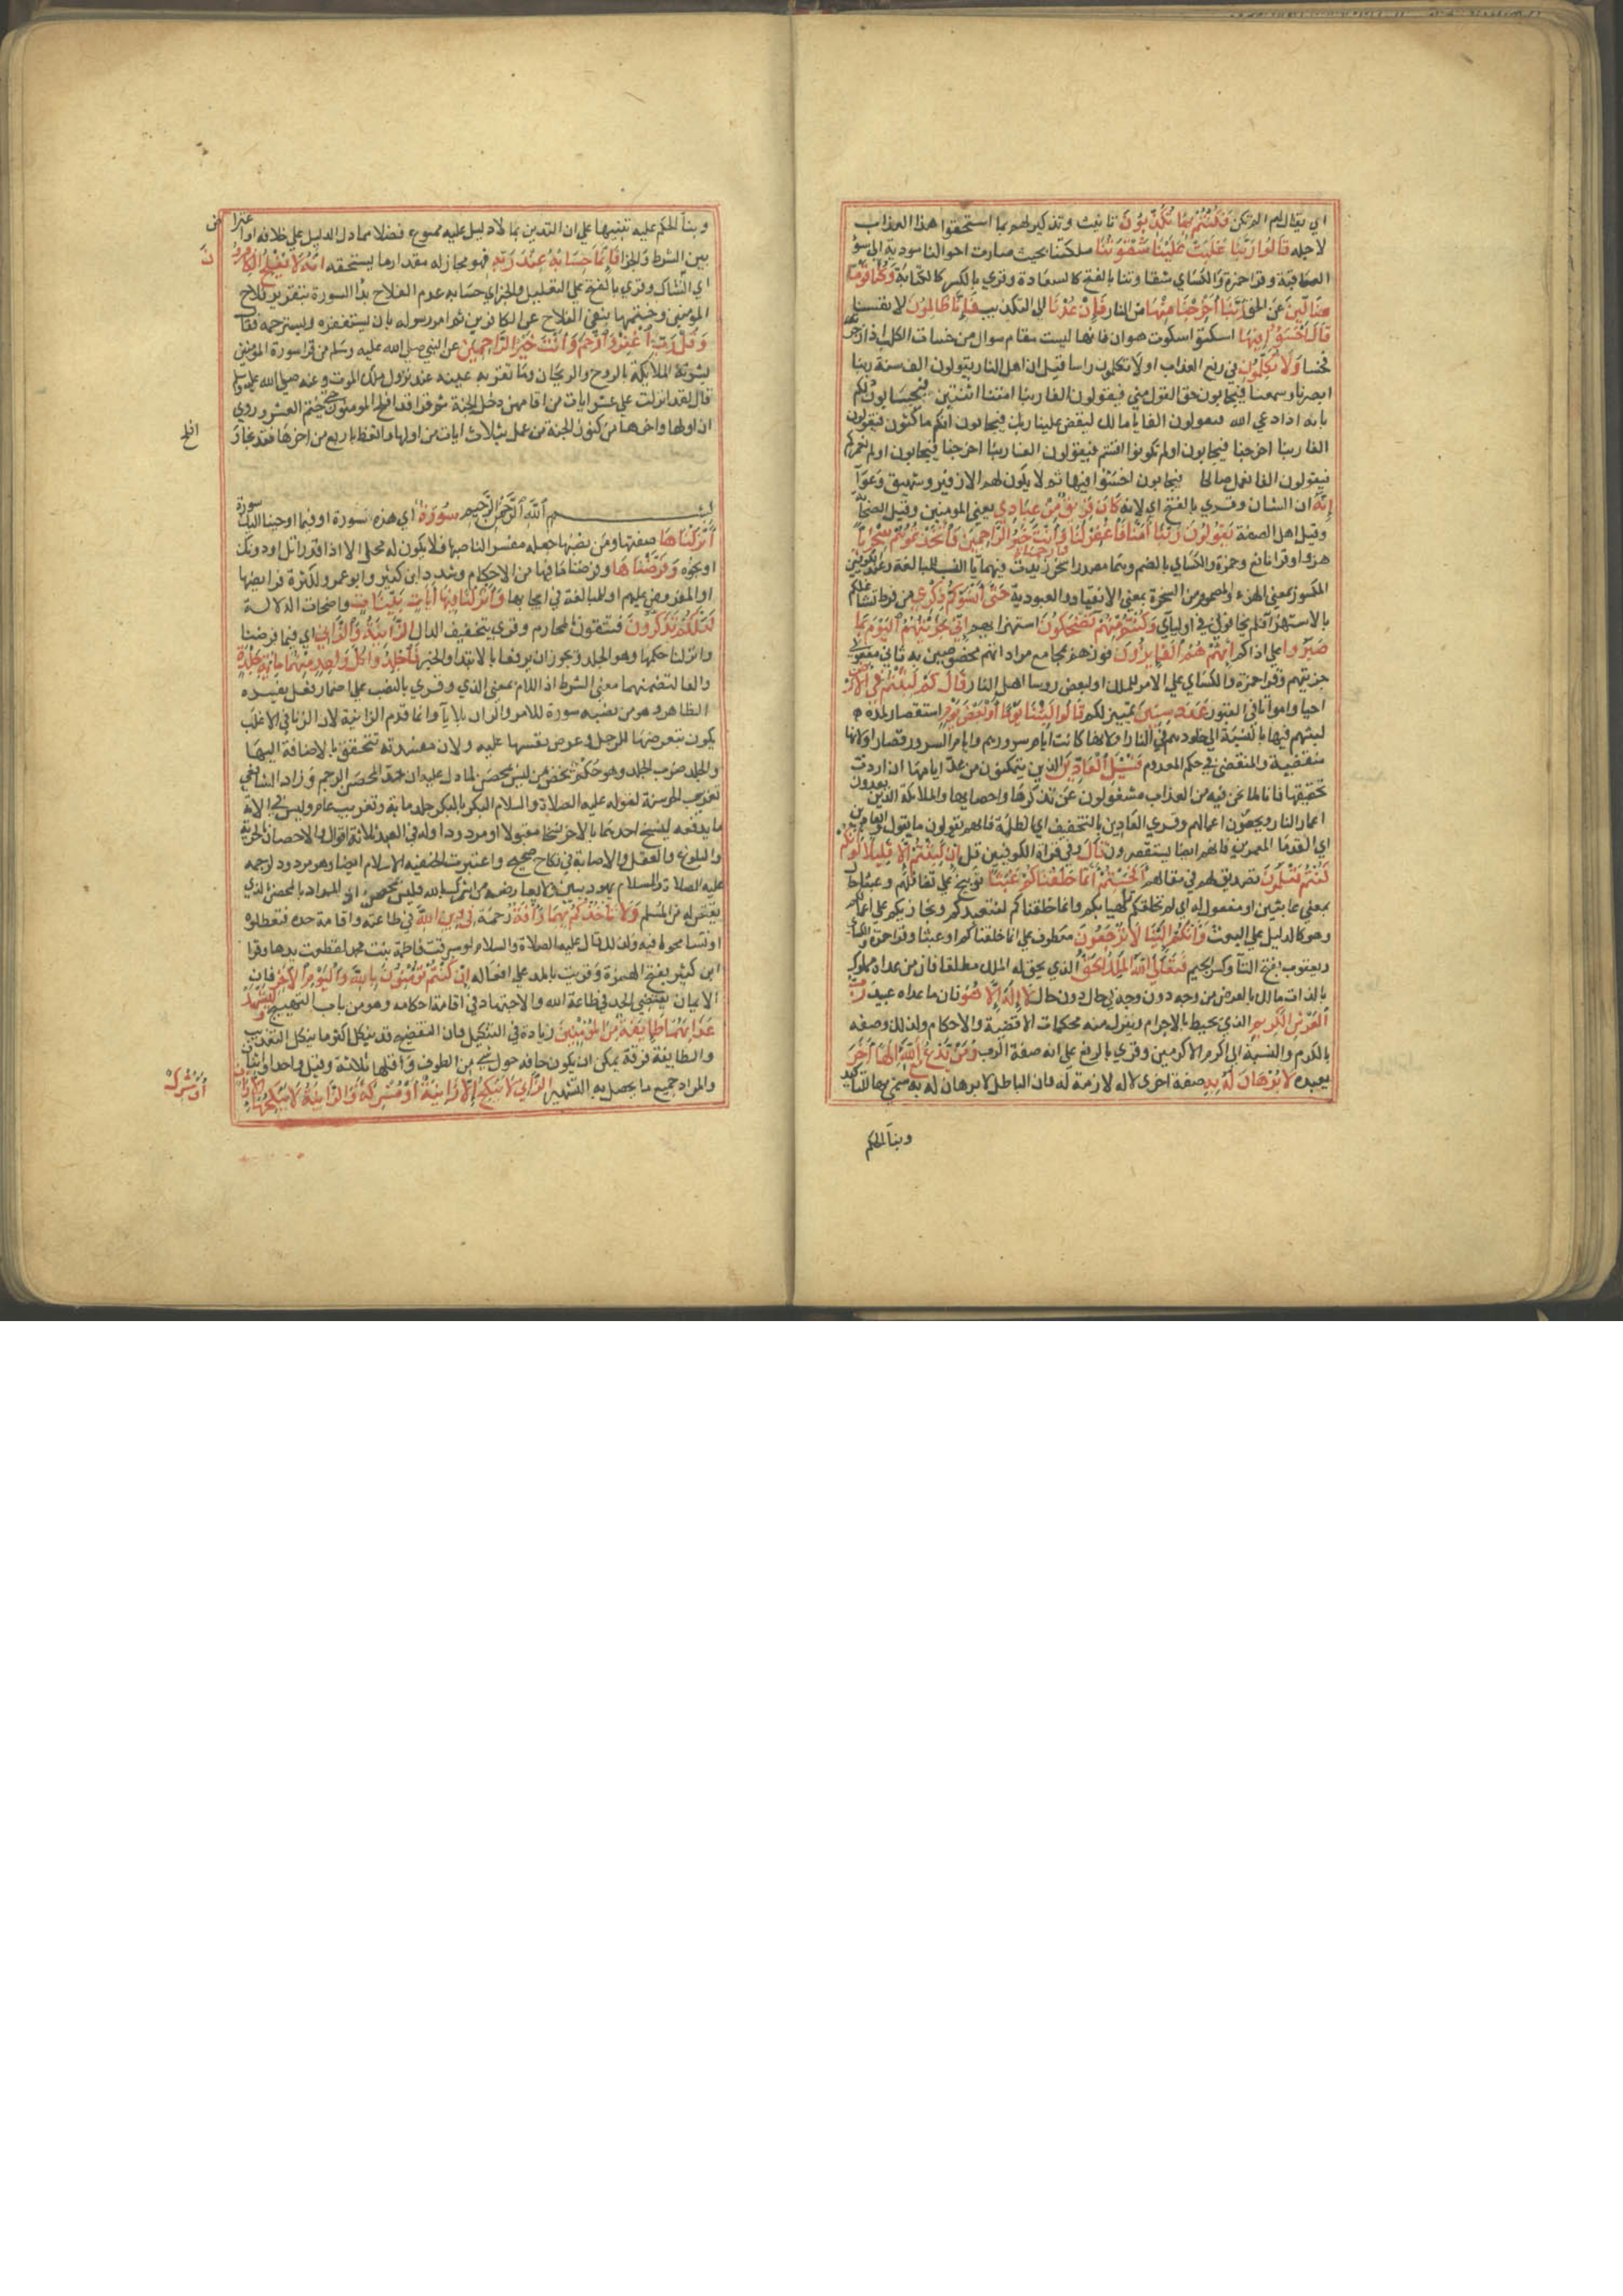 اي يقال لهم الم تكن فكنتم بها تكذبون تانيث وتذكير لهم بما استحقوا هذا العذاب
لاجله قالوا ربنا غلبت علينا شقوتنا ملكتنا بحيث صارت احوالنا مودية الى سو
العاقبة وقرا حمزة والكساي شقاوتنا بالفتح كالسعادة وقري بالكسر كالكتابة وكنا قوما
ضالين عن الحق ربنا اخرجنا منها من النار فان عدنا الى التكذيب فانا ظالمون لانفسنا
قال اخسؤا فيها اسكتوا سكوت هوان فانها ليست مقام سوال من خسات الكلب اذا زجرته
فخسا ولا تكلمون في رفع العذاب او لا تكلمون راسا قيل ان اهل النار يقولون الف سنة ربنا
ابصرنا وسمعنا فيجابون حق القول مني فيقولون الفا ربنا امتنا اثنتين فيجابون ذلكم
بانه اذا دعي الله فيقولون الفا يا مالك ليقض علينا ربك فيجابون انكم ماكثون فيقولون
الفا ربنا اخرجنا فيجابون اولم تكونوا اقسمتم فيقولون الفا ربنا اخرجنا فيجابون اولم نعمركم
فيقولون الفا نعمل صالحا فيجابون اخسئوا فيها ثم لا يكون لهم الا زفير وشهيق وعوآ
إنه ان الشان وقري بالفتح اي لانه كان فريق من عبادي يعني المومنين وقيل الصحابة
وقيل اهل الصفة يقولون ربنا امنا فاغفر لنا وارحمنا وانت خير الراحمين فاتخذتموهم سخريا
هزوا وقرا نافع وحمزة والكساي بالضم وهما مصدرا سخر زيدت فيهما يا النسب للمبالغة وعند الكوفيين
المكسور بمعنى الهزء والمضموم من السخرة بمعنى الانقياد والعبودية حتى انسوكم ذكري من فرط تشاغلكم
بالاستهزا فلم تخافوني في اوليآي وكنتم منهم تضحكون استهزا بهم اني جزيتهم اليوم بما
صبروا على اذاكم انهم هم الفايزون فوزهم بمجامع مراداتهم مخصوصين به ثاني مفعولي
جزيتهم وقرا حمزة والكساي على الامر للملك او لبعض روسا اهل النار قال كم لبثتم في الارض
احيا وامواتا في القبور عدد سنين تمييز لكم قالوا لبثنا يوما او بعض يوم استقصارا لمدة
لبثهم فيها بالنسبة الى خلودهم في النار او لانها كانت ايام سرورهم وايام السرور قصار او لانها
منقضية والمنقضي في حكم المعدوم فسئل العادين الذين يتمكنون من عد ايامها ان اردت
تحقيقها فانا لما نحن فيه من العذاب مشغولون عن تذكرها واحصايها والملايكة الذين يعدون
اعمار الناس ويحصون اعمالهم وقري العادين بالتخفيف اي الظلمة فانهم يقولون ما نقول والعاديين
اي القدما المعمرين فانهم ايضا يستقصرون قال وفي قراة الكوفيين قل ان لبثتم الا قليلا لو انكم
كنتم تعلمون تصديق لهم في مقالهم افحسبتم انما خلقناكم عبثا توبيخ على تغافلهم وعبثا حال
بمعنى عابثين او مفعول له اي لم نخلقكم تلهيا بكم وانما خلقناكم لنتعبدكم ونجازيكم على اعمالكم
وهو كالدليل على البعث وانكم الينا لا ترجعون معطوف على انما خلقناكم او عبثا وقرا حمزة والكساي
ويعقوب بفتح التآ وكسر الجيم فتعالى الله الملك الحق الذي يحق له الملك مطلقا فان من عداه مملوك
بالذات مالك بالعرض من وجه دون وجه في حال دون حال لا اله الا هو فان ما عداه عبيد رب
العرش الكريم الذي يحيط بالاجرام وينزل منه محكمات الاقضية والاحكام ولذلك وصفه
بالكرم او لنسبته الى اكرم الاكرمين وقري بالرفع على انه صفة الرب ومن يدع مع الله الها اخر
يعبده لا برهان له به صفة اخرى لاله لازمة له فان الباطل لا برهان له به جئ بها للتاكيد
وبنآ الحكم
وبنآ الحكم عليه تنبيها على ان التدين بما لا دليل عليه ممنوع فضلا عما دل الدليل على خلافه او اعتراض
بين الشرط والجزا فانما حسابه عند ربه فهو مجاز له مقدار ما يستحقه انه لا يفلح الكافرون
اي الشان وقري بالفتح على التعليل او الخبر اي حسابه عدم الفلاح بدأ السورة بتقرير فلاح
المومنين وختمها بنفي الفلاح عن الكافرين ثم امر رسوله بان يستغفره ويسترحمه فقال
وقل رب اغفر وارحم وانت خير الراحمين عن النبي صلى الله عليه وسلم من قرا سورة المومنين
بشرته الملايكة بالروح والريحان وما تقر به عينه عند نزول ملك الموت وعنه صلى الله عليه وسلم
قال لقد انزلت علي عشر ايات من اقامهن دخل الجنة ثم قرا قد افلح المومنون حتى ختم العشر وروي
ان اولها واخرها من كنوز الجنة من عمل بثلاث ايات من اولها واتعظ باربع من اخرها فقد نجا و
افلح
بسم الله الرحمن الرحيم سورة اي هذه سورة او فيما اوحينا اليك سورة
أنزلناها صفتها ومن نصبها جعله مفسرا لناصبها فلا يكون له محل الا اذا قدر اتل او دونك
او نحوه وفرضناها وفرضنا ما فيها من الاحكام وشدده ابن كثير وابو عمرو لكثرة فرايضها
او المفروض عليهم او للمبالغة في ايجابها وانزلنا فيها ايات بينات واضحات الدلالة
لعلكم تذكرون فتتقون المحارم وقري بتخفيف الدال الزانية والزاني اي فيما فرضنا
وانزلنا حكمها وهو الجلد ويجوز ان يرفعا بالابتدا والخبر فاجلدوا كل واحد منهما ماية جلدة
والفا لتضمنهما معنى الشرط اذ اللام بمعنى الذي وقري بالنصب على اضمار فعل يفسره
الظاهر وهو من نصبه سورة للامر والزان بلا يآ وانما قدم الزانية لان الزنا في الاغلب
يكون بتعرضها للرجل وعرض نفسها عليه ولان مفسدته تتحقق بالاضافة اليها
والجلد ضرب الجلد وهو حكم يخص من ليس بمحصن لما دل عليه ان حد المحصن الرجم وزاد الشافعي
تغريب الحر سنة لقوله عليه الصلاة والسلام البكر بالبكر جلد ماية وتغريب عام وليس في الاية
ما يدفعه لينسخ احدهما بالاخر نسخا مقبولا او مردودا وله في العبد ثلاثة اقوال والاحصان الحرية
والبلوغ والعقل والاصابة في نكاح صحيح واعتبرت الحنفية الاسلام ايضا وهو مردود لرجمه
عليه الصلاة والسلام يهوديين ولا يعارضه من اشرك بالله فليس بمحصن اذ المراد بالمحصن الذي
يقتص له من المسلم ولا تاخذكم بهما رأفة رحمة في دين الله في طاعته واقامة حده فتعطلوه
او تسامحوا فيه ولذلك قال عليه الصلاة والسلام لو سرقت فاطمة بنت محمد لقطعت يدها وقرا
ابن كثير بفتح الهمزة وقريت بالمد على افعاله ان كنتم تؤمنون بالله واليوم الاخر فان
الايمان يقتضي الجد في طاعة الله والاجتهاد في اقامة احكامه وهو من باب التهييج وليشهد
عذابهما طايفة من المؤمنين زيادة في التنكيل فان التفضيح قد ينكل اكثر ما ينكل التعذيب
والطايفة فرقة يمكن ان يكون حافة حول شي من الطوف واقلها ثلاثة وقيل واحد او اثنان
والمراد جميع ما يحصل به التشهير الزاني لا ينكح الا زانية او مشركة والزانية لا ينكحها الا زان
أو مشرك